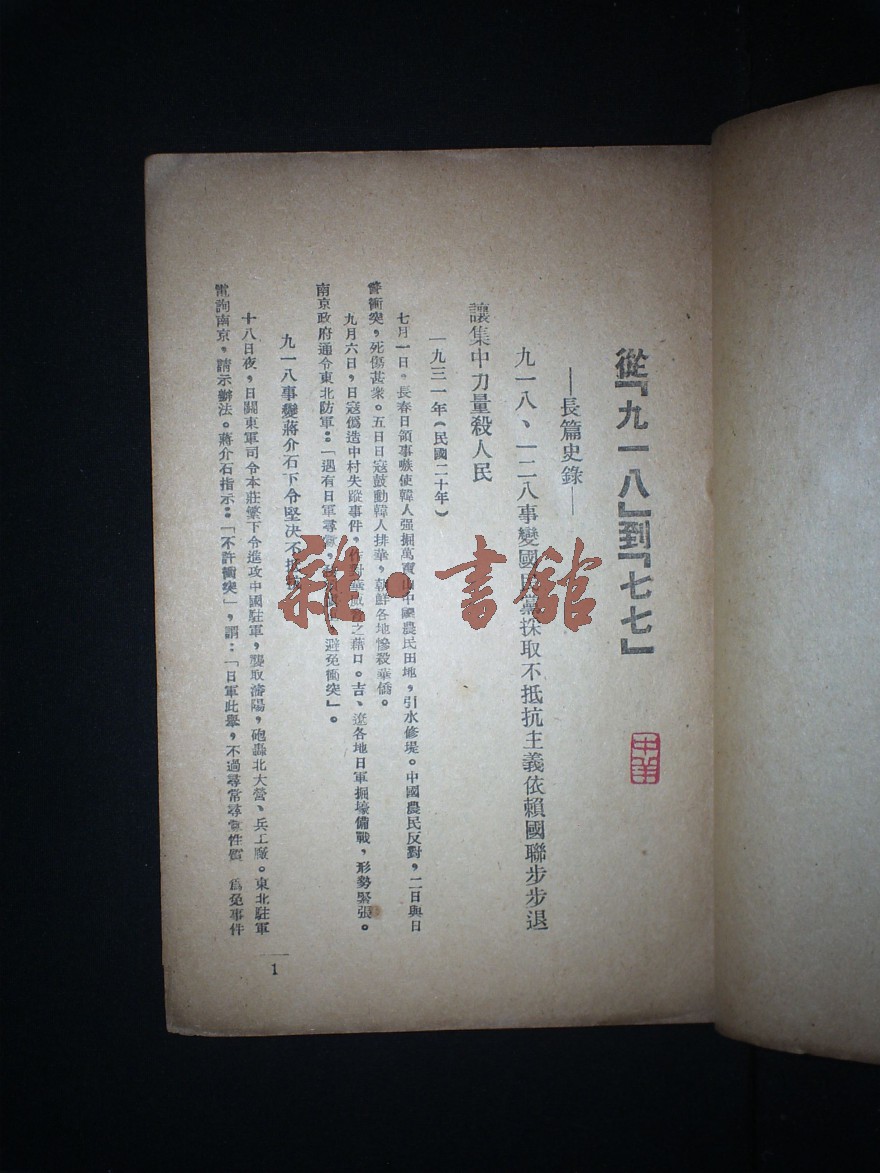 從「九一八」到「七七」
—長篇史錄—
九一八、一二八事變國民黨採取不抵抗主義依賴國聯步步退
讓集中力量殺人民
一九三一年（民國二十年）
七月一日，長春日領事嗾使韓人强掘萬寶山中國農民田地，引水修堤。中國農民反對，二日與日
警衝突，死傷甚衆。五日日寇鼓動韓人排華，朝鮮各地慘殺華僑。
九月六日，日寇僞造中村失蹤事件，作對華之藉口。吉、遼各地日軍掘壕備戰，形勢緊張。
南京政府通令東北防軍：「遇有日軍尋釁，避免衝突」。
九一八事變蔣介石下令堅決不抵抗
十八日夜，日關東軍司令本莊繁下令進攻中國駐軍，襲取瀋陽，砲轟北大營、兵工廠。東北駐軍
電詢南京，請示辦法。蔣介石指示：「不許衝突」，謂：「日軍此舉，不過尋常尋釁性質 爲免事件
1
雜·書館